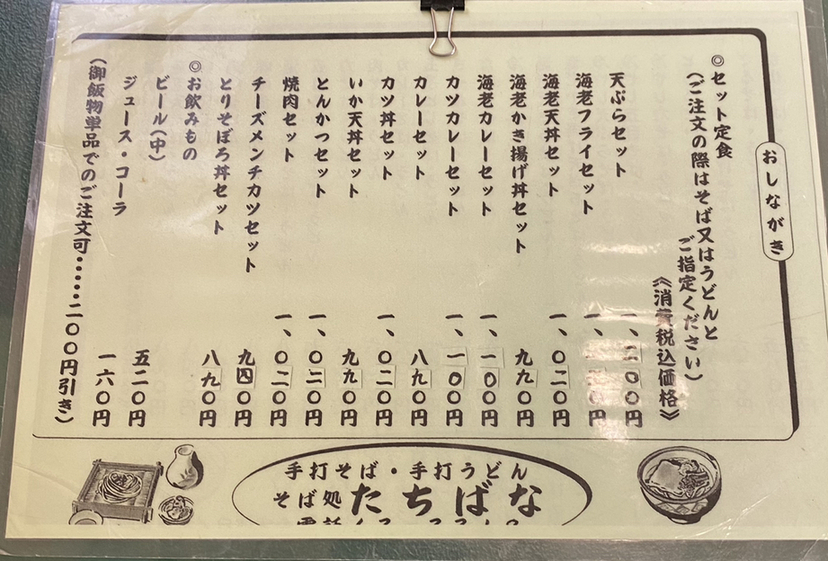 おしながき
◎セット定食
(ご注文の際はそば又はうどんと
ご指定ください)
《消費税込価格》
天ぷらセット
海老フライセット
海老天丼セット 一、〇二〇円
海老かき揚げ丼セット 九九〇円
海老カレーセット 一、一〇〇円
カツカレーセット 一、一〇〇円
カレーセット 八九〇円
カツ丼セット 一、〇二〇円
いか天丼セット 九九〇円
とんかつセット 一、〇二〇円
焼肉セット 一、〇二〇円
チーズメンチカツセット 九四〇円
とりそぼろ丼セット 八九〇円
◎お飲みもの
ビール(中) 五二〇円
ジュース・コーラ 一六〇円
(御飯物単品でのご注文可・・・・・二〇〇円引き)
手打そば・手打うどん
そば処 たちばな